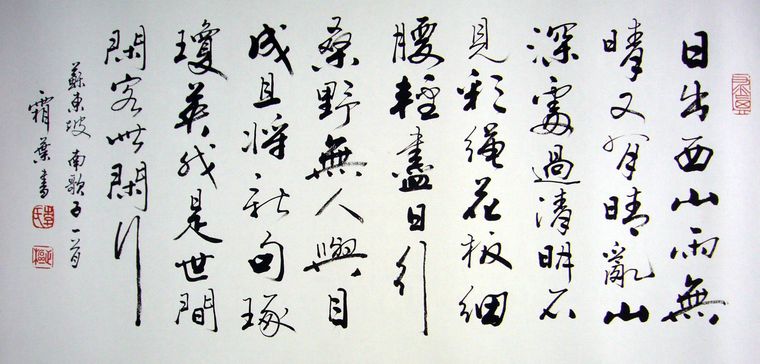 日出西山雨無
晴又有晴亂山
深處過清明不
見彩繩花板細
腰輕盡日行
桑野無人與目
成且將新句琢
瓊英我是世間
閑客此閑行
蘇東坡南歌子一首
霜葉書